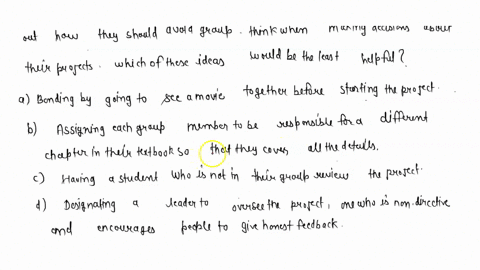 out how they should avoid group. think when making decisions about
their projects. which of these ideas would be the least helpful?
a) Bonding by going to see a movie together before starting the project.
b) Assigning each group member to be responsible for a different
chapter in their textbook so that they cover all the details.
c) Having a student who is not in their group review the project.
d) Designating a leader to oversee the project, one who is non-directive
and encourages people to give honest feedback.